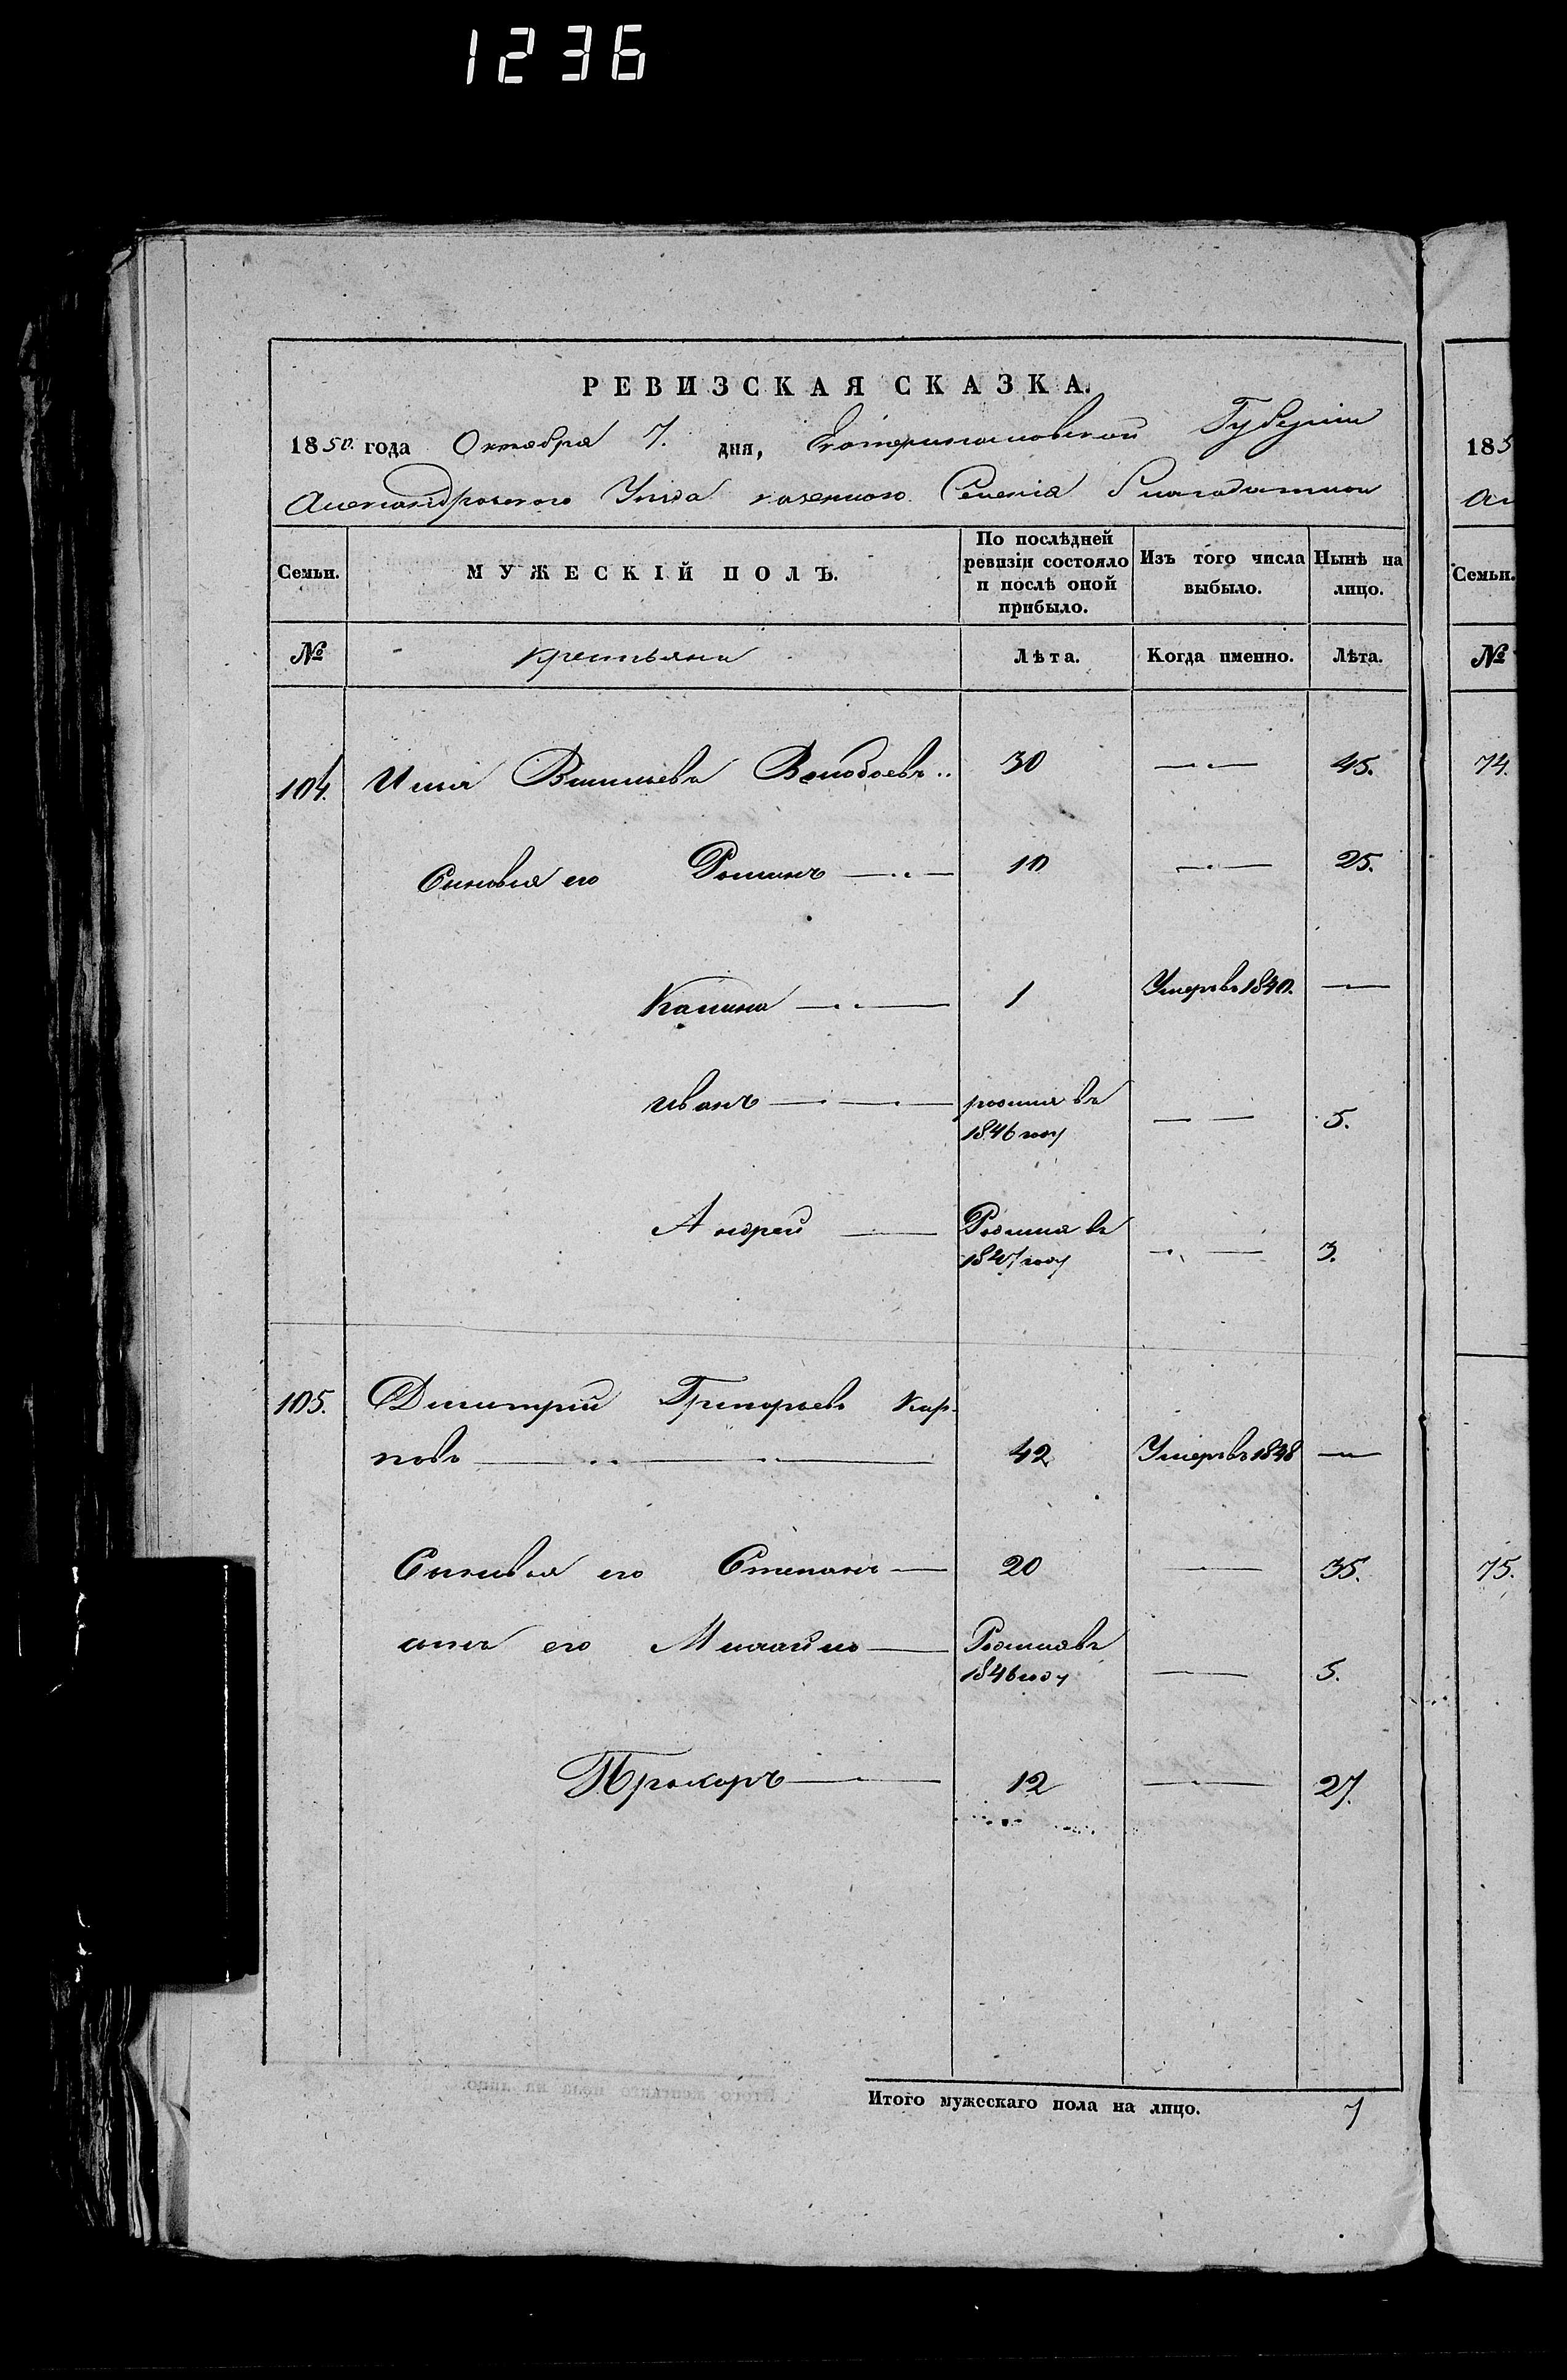 1236
РЕВИЗСКАЯ СКАЗКА.
1850 года Октября 7. дня, Екатеринославской Губерніи
Александровскаго Уѣзда казеннаго Селенія Благодатнаго
Семьи. МУЖЕСКІЙ ПОЛЪ. По послѣдней ревизіи состояло и послѣ оной прибыло. Изъ того числа выбыло. Нынѣ на лицо.
№ Крестьяне Лѣта. Когда именно. Лѣта.
104. Илья 30 45.
Сыновья его Романъ 10 25.
Калина 1 Умеръ въ 1840. —
Иванъ родился въ 1846 году 5.
Андрей Родился въ 1847 году 3.
105. Дмитрій Григорьевъ Кар-
повъ 42 Умеръ въ 1848 —
Сыновья его Степанъ 20 35.
сынъ его Михайло Родился въ 1846 году 5.
Прохоръ 12 27.
Итого мужескаго пола на лицо. 7
185
Ал
Семьи.
№
74.
75.